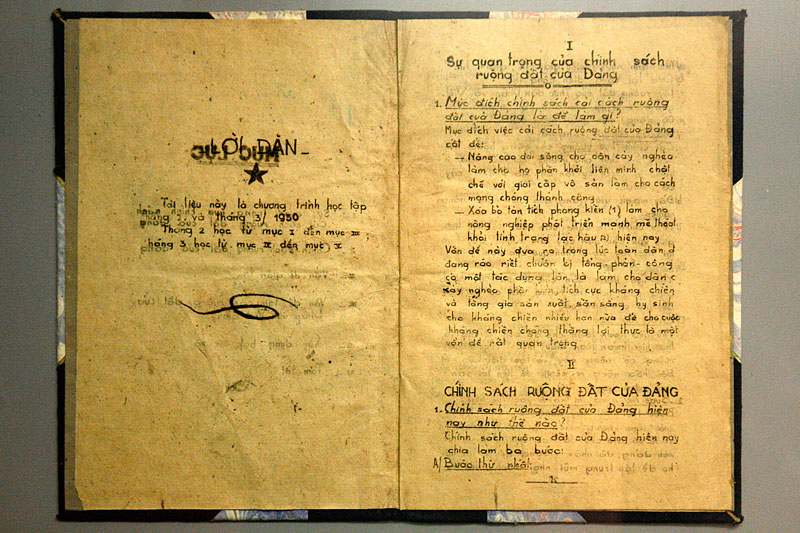 LỜI DẪN
Tài liệu này là chương trình học tập
tháng 2 và tháng 3/1950
Tháng 2 học từ mục I đến mục III
tháng 3 học từ mục IV đến mục X
I
Sự quan trọng của chính sách
ruộng đất của Đảng
1. Mục đích chính sách cải cách ruộng
đất của Đảng là để làm gì?
Mục đích việc cải cách ruộng đất của Đảng
cốt để:
– Nâng cao đời sống cho dân cày nghèo
làm cho họ phấn khởi liên minh chặt
chẽ với giai cấp vô sản làm cho cách
mạng chóng thành công
– Xoá bỏ tàn tích phong kiến (1) làm cho
nông nghiệp phát triển mạnh mẽ thoát
khỏi tình trạng lạc hậu (2) hiện nay
Vấn đề này đưa ra trong lúc toàn dân ta
đang ráo riết chuẩn bị tổng phản công
có một tác dụng lớn là làm cho dân
cày nghèo phấn khởi, tích cực kháng chiến
và tăng gia sản xuất, sẵn sàng hy sinh
cho kháng chiến nhiều hơn nữa để cho cuộc
kháng chiến chóng thắng lợi thực là một
vấn đề rất quan trọng.
II
CHÍNH SÁCH RUỘNG ĐẤT CỦA ĐẢNG
1. Chính sách ruộng đất của Đảng hiện
nay như thế nào?
Chính sách ruộng đất của Đảng hiện nay
chia làm ba bước:
A/ Bước thứ nhất: